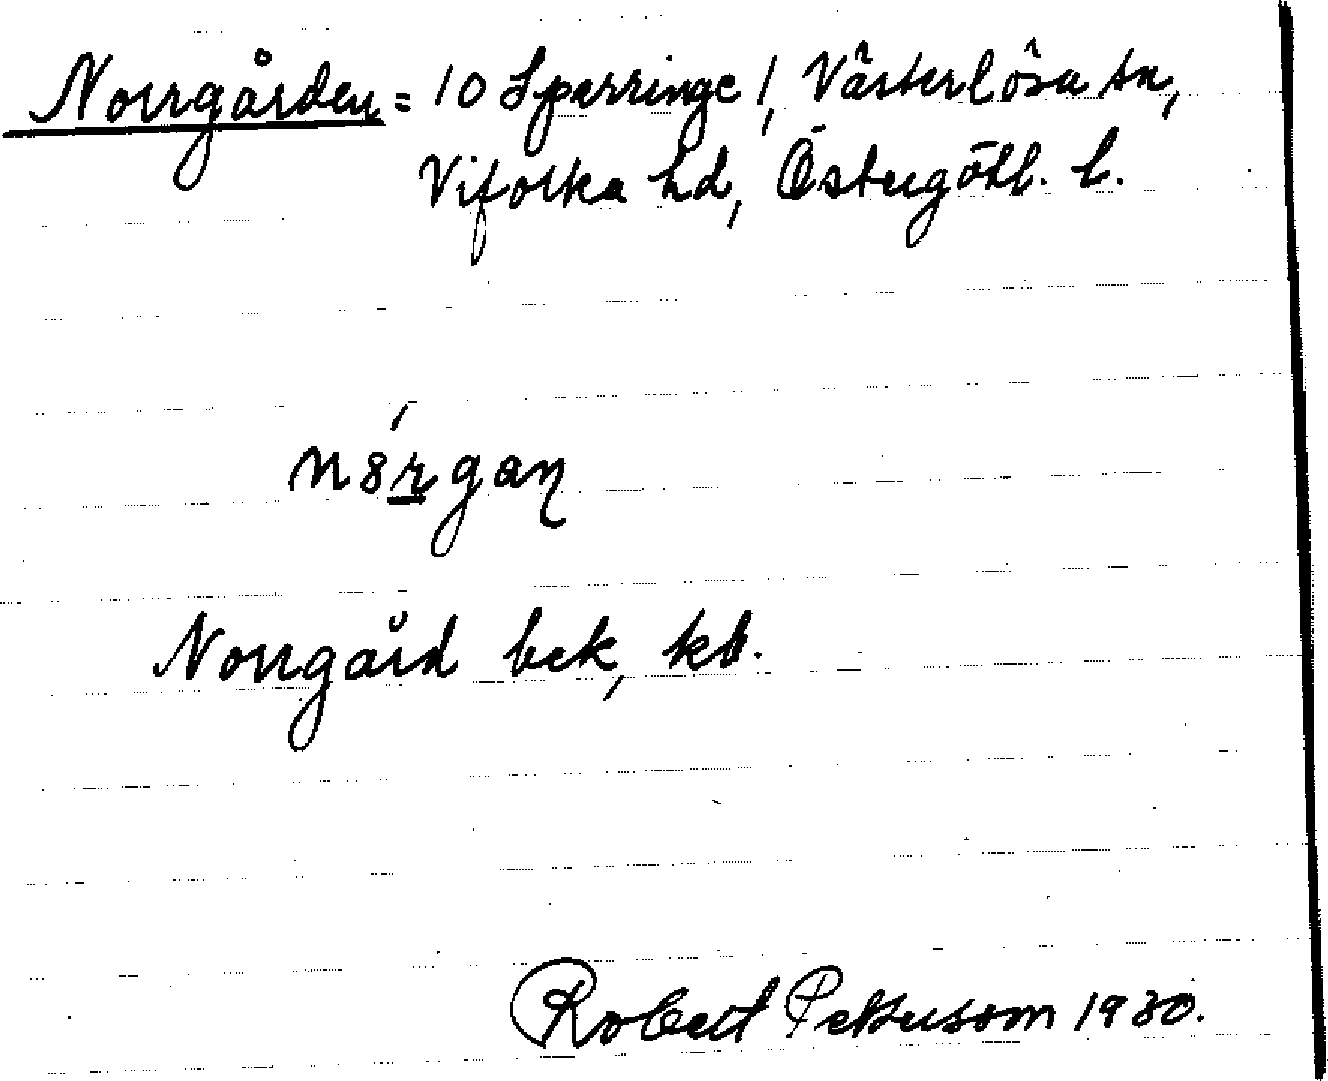 Norrgården = 10 Sperringe /, Västerlösa sn,
Vifolka hd, Östergötl. l.
n8́rgaη
Norrgård bek, kb.
Robert Pettersson 1930.